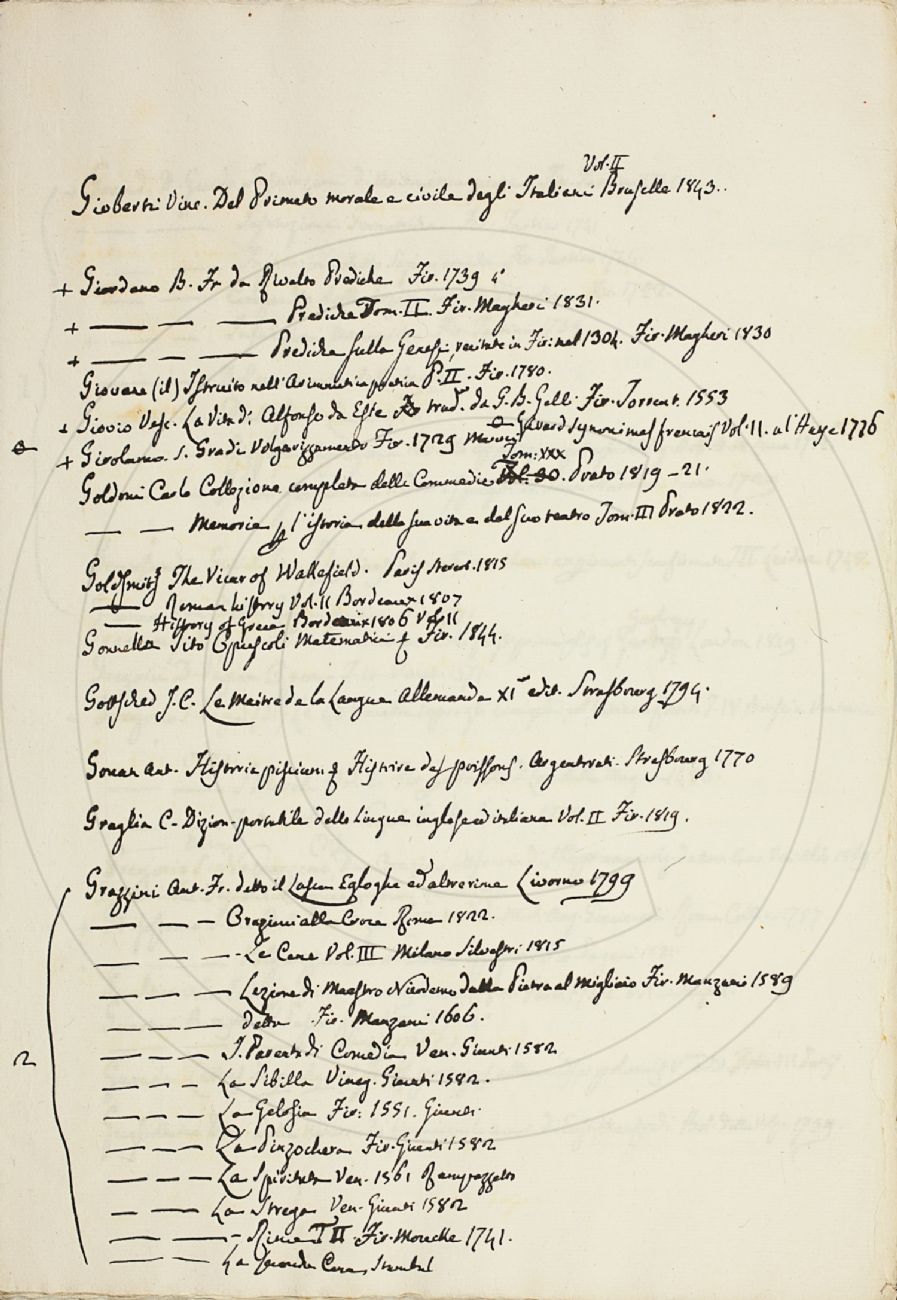 Vol. II
Gioberti Vinc. Del Primato morale e civile degli Italiani Bruselle 1843.
+ Giordano B. Fr. da Rivalto Prediche Fir. 1739 4°
+ — — — Prediche Tom. II. Fir. Magheri 1831.
+ — — — Prediche sulla Genesi, recitate in Fir: nel 1304. Fir. Magheri 1830
Giovane (il) Istruito nell'Arimmetica pratica P. II. Fir. 1780.
+ Giovio Vesc. La Vita di Alfonso da Este trad. da G. B. Gelli Fir. Torrent. 1553
Girard Synonimes français Vol. II. a l'Haye 1776
+ Girolamo S. Gradi Volgarizzamento Fir. 1729 Manni
Tom: XXX
Goldoni Carlo Collezione completa delle Commedie Prato 1819-21.
— — Memorie p. l'istoria della sua vita e del suo teatro Tom. III Prato 1822.
Goldsmith The Vicar of Wakefield. Paris Stereot. 1815
— Roman history Vol. II Bordeaux 1807
— History of Greece Bordeaux 1806 Vol. II
Gonnella Tito Opuscoli Matematici Fir. 1844.
Gottsched J. C. Le Maitre de la Langue Allemande XI edit. Strasbourg 1794.
Gouan Ant. Historia piscium Histoire des poissons. Argentorati. Strasbourg 1770
Graglia C. Dizion. portatile delle Lingue inglese ed italiana Vol. II Fir. 1819.
Grazzini Ant. Fr. detto il Lasca Egloghe ed altre rime Livorno 1799
— — — Orazioni alla Croce Roma 1822.
— — — Le Cene Vol. III Milano Silvestri 1815
— — — Lezione di Maestro Nicodemo dalla Pietra al Migliaio Fir. Manzani 1589
— — — detta Fir. Manzani 1606.
2 — — — I Parentadi Comedia Ven. Giunti 1582
— — — La Sibilla Vineg. Giunti 1582.
— — — La Gelosia Fir: 1551. Giunti
— — — La Pinzochera Fir. Giunti 1582
— — — La Spiritata Ven. 1561 Rampazzetto
— — — La Strega Ven. Giunti 1582
— — — Rime T. II Fir. Moucke 1741.
— — La Seconda Cena, Stambul